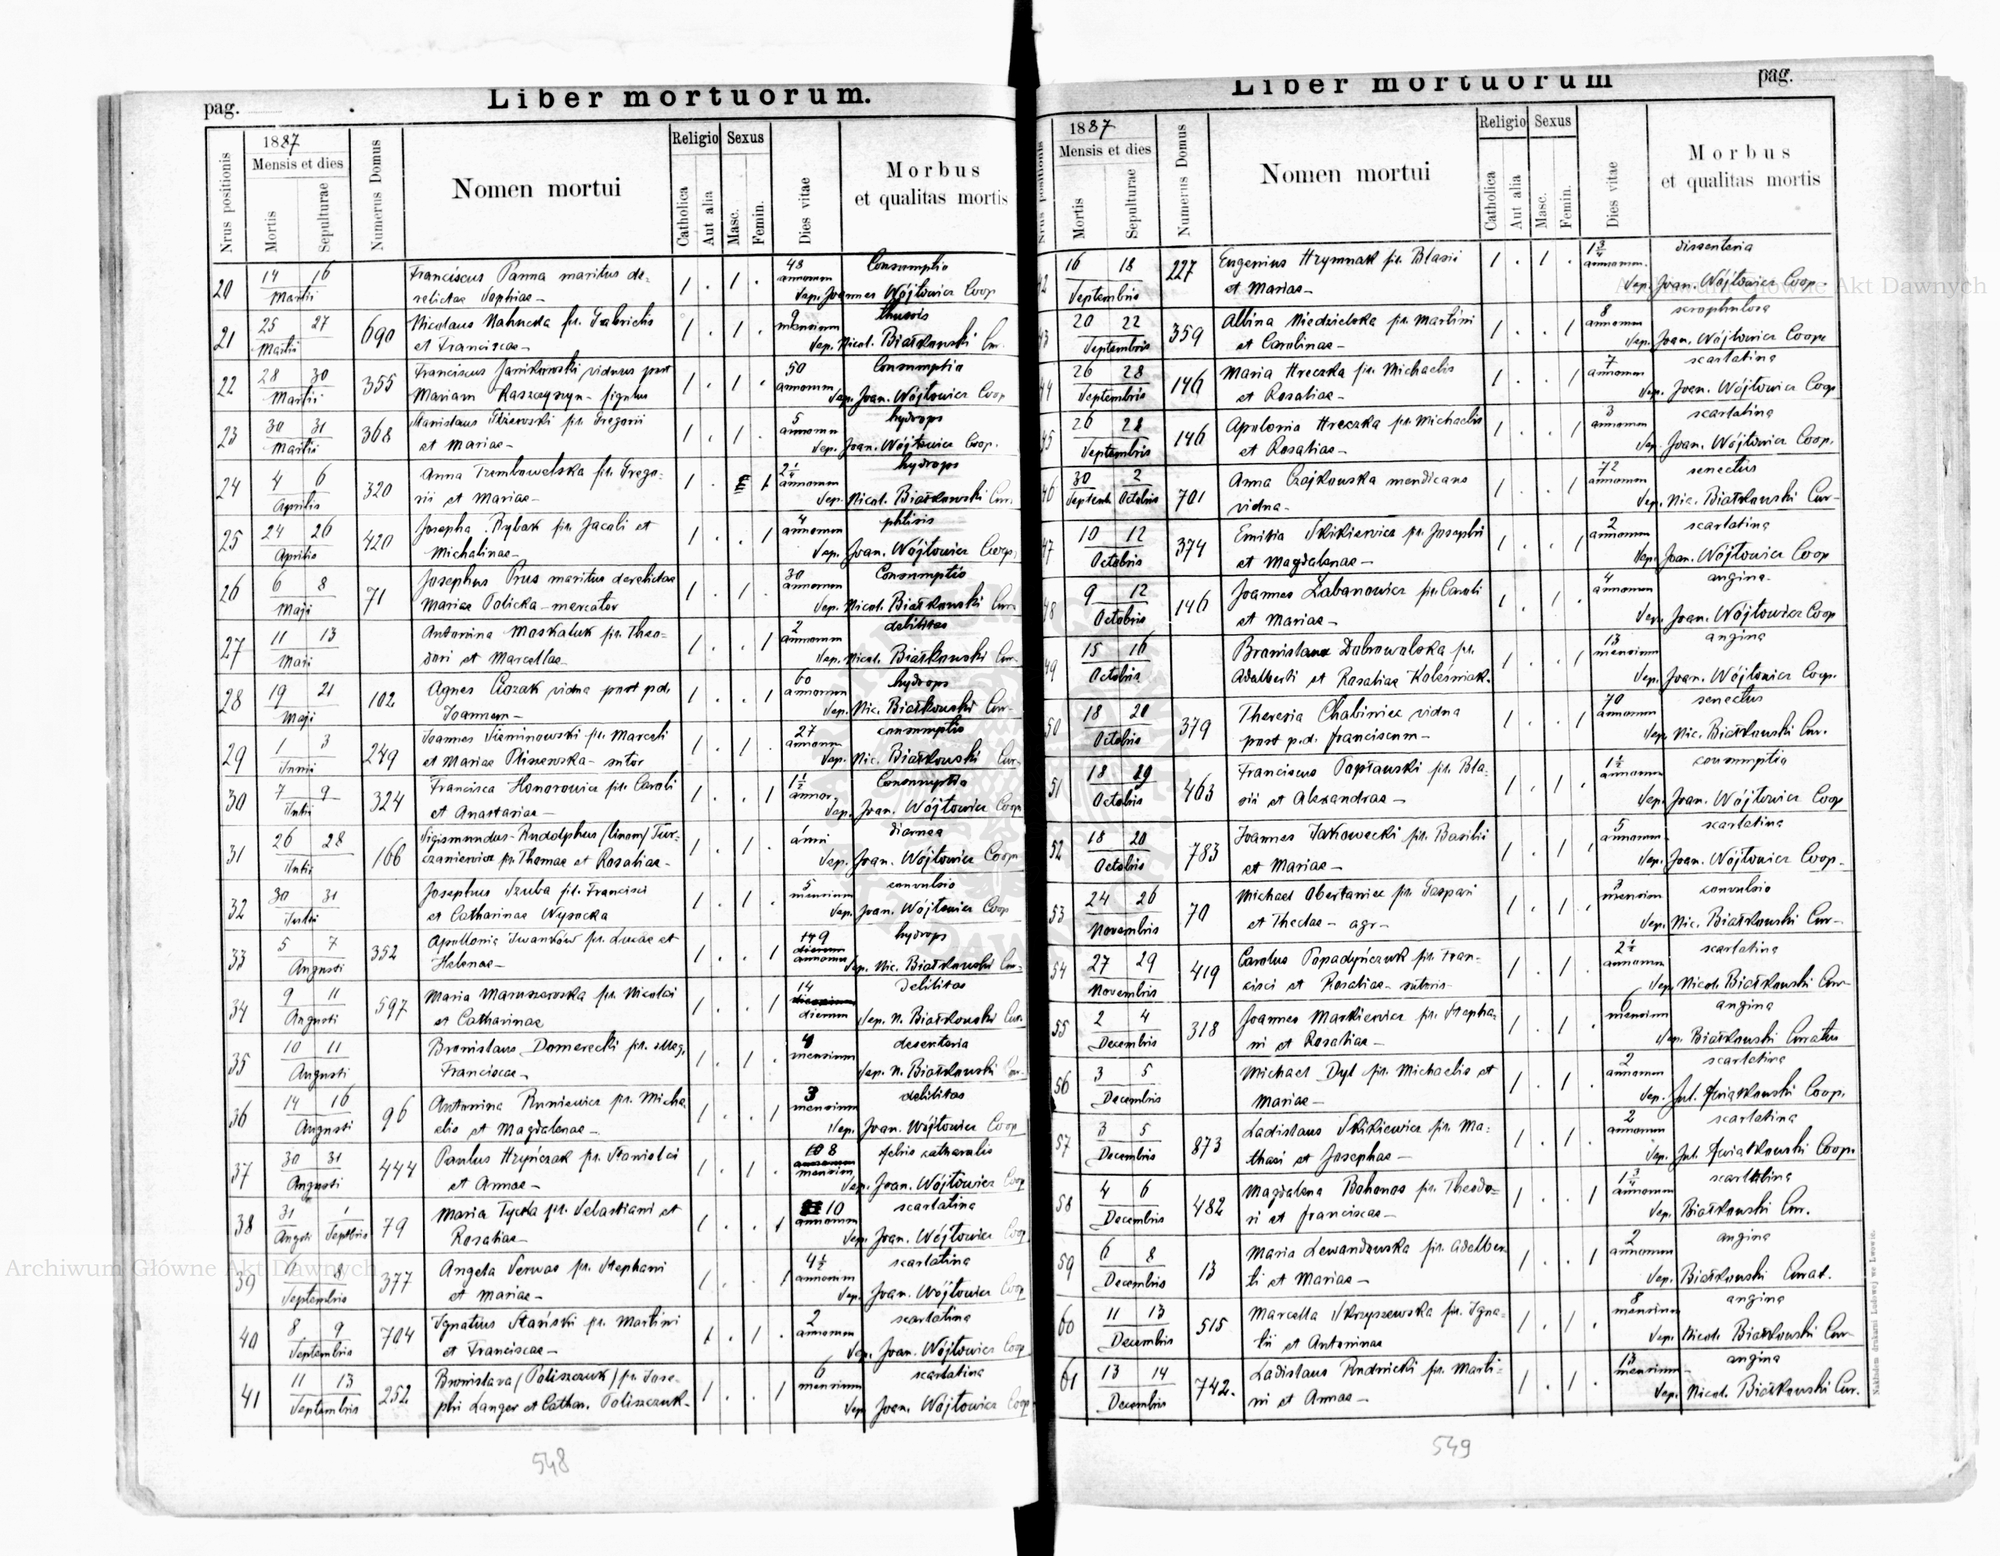 pag.
Liber mortuorum.
Nrus positionis
1887
Mensis et dies
Mortis
Sepulturae
Numerus Domus
Nomen mortui
Religio
Catholica
Aut alia
Sexus
Masc.
Femin.
Dies vitae
Morbus
et qualitas mortis
20 14 16 Franciscus Panna maritus de= 1 . 1 . 48 Consumptio
Martii relictae Sophiae annorum Sep. Joannes Wójtowicz Coop
21 25 27 690 Nicolaus 1 . 1 . 9 thussis
Martii et Franciscae mensium Sep. Nicol. Białkowski Cur.
22 28 30 355 Franciscus Janikowski viduus post 1 . 1 . 50 Consumptio
Martii Mariam Raszczyszyn figulus annorum Sep. Joan. Wójtowicz Coop
23 30 31 368 Stanislaus pr. Gregorii 1 . 1 . 5 hydrops
Martii et Mariae annorum Sep. Joan. Wójtowicz Coop.
24 4 6 320 Anna Trembowelska pr. Grego= 1 . 1 2½ hydrops
Aprilis rii et Mariae annorum Sep. Nicol. Białkowski Cur.
25 24 26 420 Josepha Rybak pr. Jacobi et 1 . . 1 4 phtisis
Aprilis Michalinae annorum Sep. Joan. Wójtowicz Coop.
26 6 8 71 Josephus Prus maritus derelictae 1 . 1 . 30 Consumptio
Maji Mariae Policka mercator annorum Sep. Nicol. Białkowski Cur.
27 11 13 Antonina Moskaluk pr. Theo= 1 . . 1 2 debilitas
Maji dori et Marcellae annorum Sep. Nicol. Białkowski Cur.
28 19 21 102 Agnes vidua post p.d. 1 . . 1 60 hydrops
Maji Joannem annorum Sep. Nic. Białkowski Cur.
29 1 3 249 Joannes Sieminowski pr. Marceli 1 . 1 . 27 consumptio
et Mariae Pliszewska sutor annorum Sep. Nic. Białkowski Cur.
30 7 9 324 Francisca Honorowicz pr. Caroli 1 . . 1 1½ Consumptio
Julii et Anastasiae annor. Sep. Joan. Wójtowicz Coop
31 26 28 166 Sigismundus-Rudolphus (binom) Tur= 1 . 1 . anni diarhea
Julii czaniewicz pr. Thomae et Rosaliae Sep. Joan. Wójtowicz Coop
32 30 31 Josephus Szuba pr. Francisci 1 . 1 . 5 convulsio
Julii et Catharinae Wysocka mensium Sep. Joan. Wójtowicz Coop
33 5 7 352 Apollonia Iwanków pr. Lucae et 1 . . 1 9 hydrops
Augusti Helenae annorum Sep. Nic. Białkowski Cur.
34 9 11 597 Maria Maruszewska pr. Nicolai 1 . . 1 14 Debilitas
Augusti et Catharinae dierum Sep. N. Białkowski Cur.
35 10 11 Bronislaus Domerecki pr. illeg. 1 . 1 . 4 desenteria
Augusti Franciscae mensium Sep. N. Białkowski Cur.
36 14 16 96 Antonina Runiewicz pr. Micha 1 . . 1 3 debilitas
Augusti elis et Magdalenae mensium Sep. Joan. Wójtowicz Coop
37 30 31 444 Paulus Hryńczak pr. Stanislai 1 . 1 . 8 febris catharalis
Augusti et Annae mensium Sep. Joan. Wójtowicz Coop
38 31 1 79 Maria Tycka pr. Sebastiani et 1 . . 1 10 scarlatina
August Septbris Rosaliae annorum Sep. Joan. Wójtowicz Coop.
39 8 377 Angela Serwas pr. Stephani 1 . . 1 4½ scarlatina
Septembris et Mariae annorum Sep. Joan. Wójtowicz Coop
40 8 9 704 Ignatius Stański pr. Martini 1 . 1 . 2 scarlatina
Septembris et Franciscae annorum Sep. Joan. Wójtowicz Coop
41 11 13 252 Bronislava (Poliszczuk) pr. Jose= 1 . . 1 6 scarlatina
Septembris phi Langer et Cathar. Poliszczuk mensium Sep. Joan. Wójtowicz Coop
548
Liber mortuorum
pag.
Nrus positionis
1887
Mensis et dies
Mortis
Sepulturae
Numerus Domus
Nomen mortui
Religio
Catholica
Aut alia
Sexus
Masc.
Femin.
Dies vitae
Morbus
et qualitas mortis
42 16 18 227 Eugenius Hrymnak pr. Blasii 1 . 1 . 1¾ dissenteria
Septembris et Mariae annorum Sep. Joan. Wójtowicz Coop.
43 20 22 359 Albina Niedzielska pr. Martini 1 . . 1 8 scrophulosa
Septembris et Carolinae annorum Sep. Joan. Wójtowicz Coop.
44 26 28 146 Maria Hreczka pr. Michaelis 1 . . 1 7 scarlatina
Septembris et Rosaliae annorum Sep. Joan. Wójtowicz Coop
45 26 28 146 Apolonia Hreczka pr. Michaelis 1 . . 1 3 scarlatina
Septembris et Rosaliae annorum Sep. Joan. Wójtowicz Coop.
46 30 2 701 Anna Czajkowska mendicans 1 . . 1 72 senectus
Septemb Octobris vidua annorum Sep. Nic. Białkowski Cur
47 10 12 374 Emilia Skikiewicz pr. Josephi 1 . . 1 2 scarlatina
Octobris et Magdalenae annorum Sep. Joan. Wójtowicz Coop
48 9 12 146 Joannes Labanowicz pr. Caroli 1 . 1 . 4 angina
Octobris et Mariae annorum Sep. Joan. Wójtowicz Coop
49 15 16 Bronislava Dobrowolska pr. 1 . . 1 13 angina
Octobris Adalberti et Rosaliae Koleśniak. mensium Sep. Joan. Wójtowicz Coop.
50 18 20 379 Theresia Chabiniec vidua 1 . . 1 70 senectus
Octobris post p.d. Franciscum annorum Sep. Nic. Białkowski Cur.
51 18 463 Franciscus Papławski pr. Bla= 1 . 1 . 1½ consumptio
Octobris sii et Alexandrae annorum Sep. Joan. Wójtowicz Coop
52 18 20 783 Joannes Jakowecki pr. Basilii 1 . 1 . 5 scarlatina
Octobris et Mariae annorum Sep. Joan. Wójtowicz Coop.
53 24 26 70 Michael Obertaniec pr. Gaspari 1 . 1 . 3 convulsio
Novembris et Theclae agr. mensium Sep. Nic. Białkowski Cur
54 27 29 419 Carolus Popadyńczuk pr. Fran= 1 . 1 . 2½ scarlatina
Novembris cisci et Rosaliae sutoris annorum Sep. Nicol. Białkowski Cur
55 2 4 318 Joannes Markiewicz pr. Stepha= 1 . 1 . 6 angina
Decembris ni et Rosaliae mensium Sep. Białkowski Curatus
56 3 5 Michael Dyl pr. Michaelis et 1 . 1 . 2 scarlatina
Decembris Mariae annorum Sep. Jul. Kwiatkowski Coop.
57 3 5 873 Ladislaus Skikiewicz pr. Ma= 1 . 1 . 2 scarlatina
Decembris thaei et Josephae annorum Sep. Jul. Kwiatkowski Coop.
58 4 6 482 Magdalena Bohonos pr. Theodo= 1 . . 1 1¾ scarlatina
Decembris ri et Franciscae annorum Sep. Białkowski Cur.
59 6 8 13 Maria Lewandowska pr. Adalber 1 . . 1 2 angina
Decembris ti et Mariae annorum Sep. Białkowski Curat.
60 11 13 515 Marcella Skrzyszewska pr. Igna= 1 . 1 . 8 angina
Decembris tii et Antoninae mensium Sep. Nicol. Białkowski Cur
61 13 14 742. Ladislaus Rudnicki pr. Marti= 1 . 1 . 13 angina
Decembris ni et Annae mensium Sep. Nicol. Białkowski Cur.
549
Nakładem drukarni Ludowej we Lwowie.
Archiwum Główne Akt Dawnych
Archiwum Główne Akt Dawnych